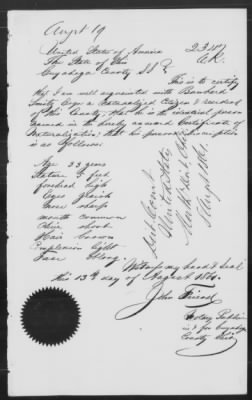 Augst 19
United States of America
The State of Ohio
Cuyahoga County SS
This is to certify
that I am well acquainted with Bernhard
Esq a naturalized Citizen & resident
of this County; that he is the identical person
named in the hereby annexed Certificate of
Naturalization; that his personal description
is as follows:
Age 33 years
Stature 5 feet
forehead high
Eyes grayish
nose sharp
mouth common
Chin short
Hair brown
Complexion light
Face Oblong
Dist Court
United States
North Dist Ohio
Witness my hand & seal
this 13th day of August 1861.
John
Notary Public
in & for Cuyahoga
County Ohio